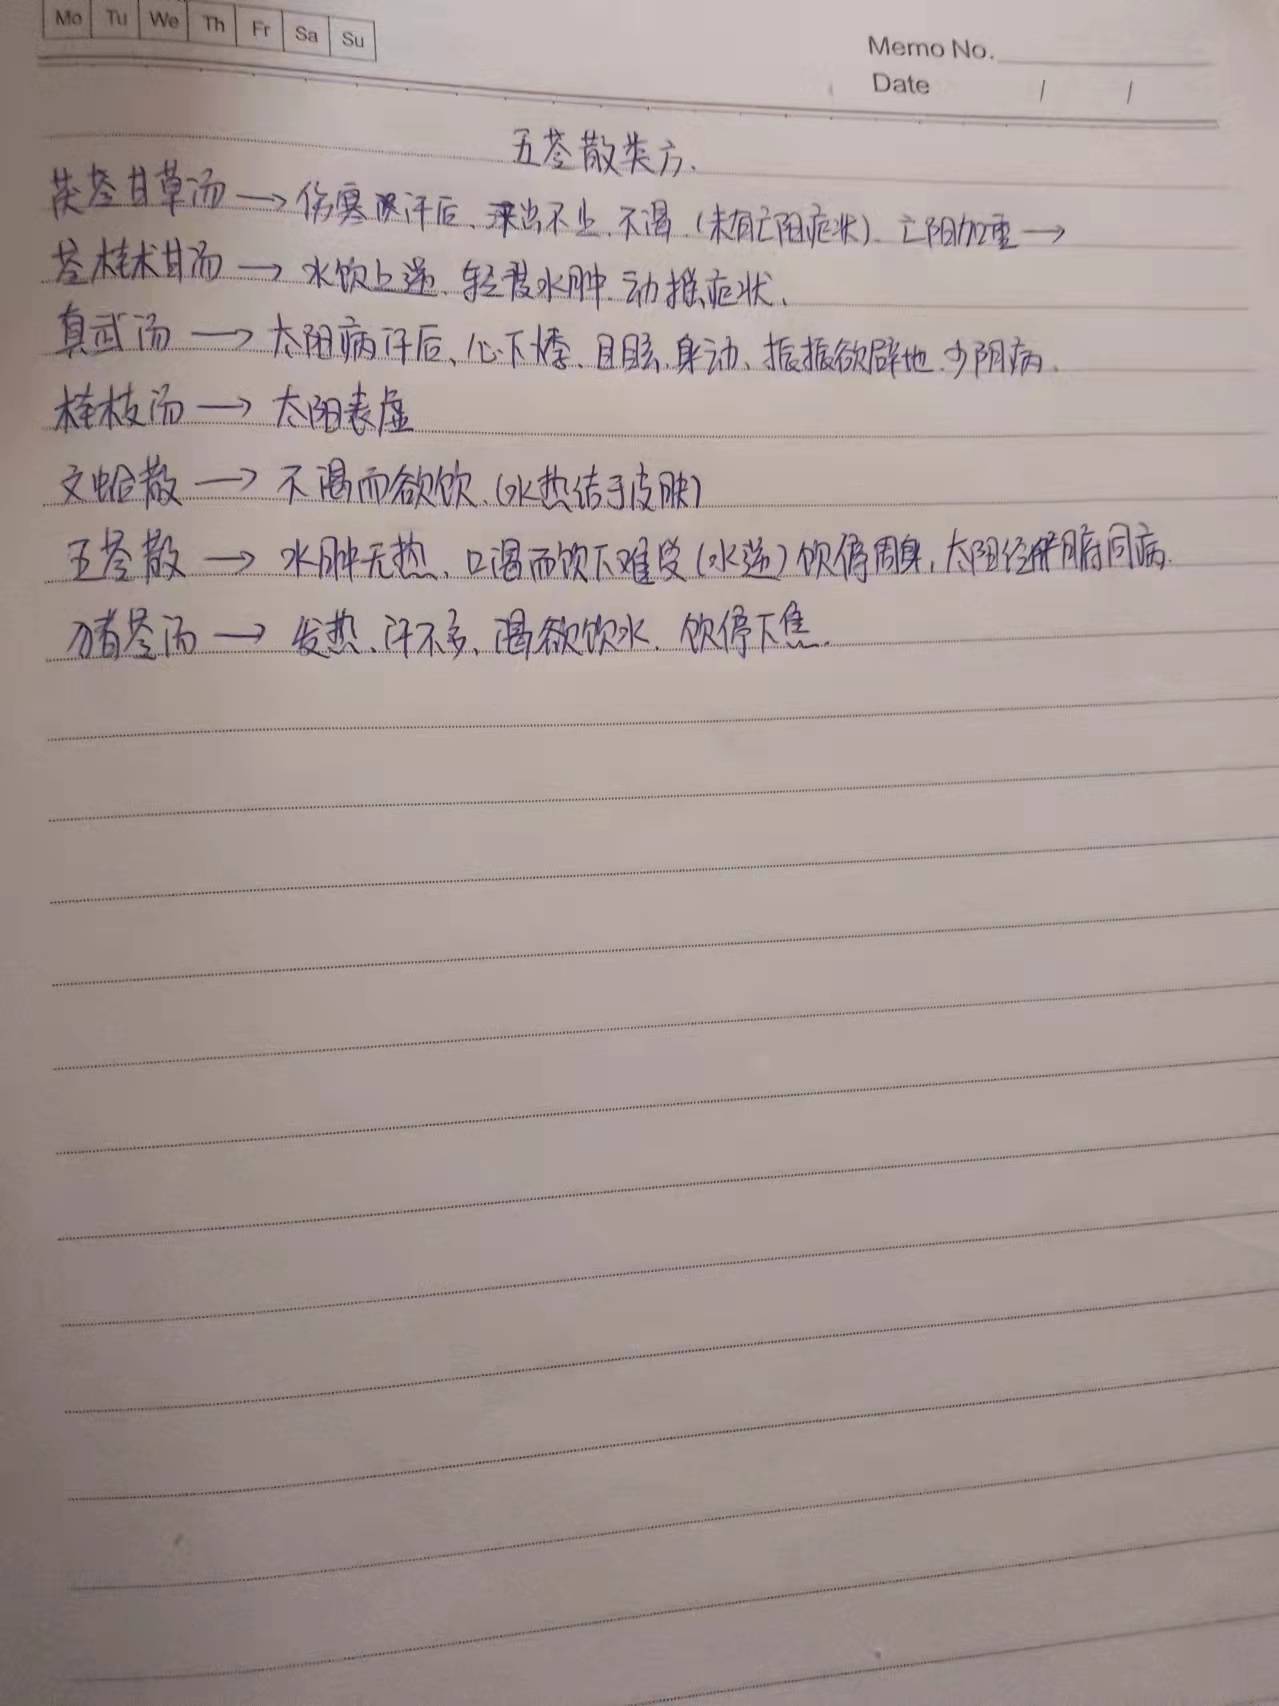 Mo Tu We Th Fr Sa Su
Memo No.
Date / /
五苓散类方.
茯苓甘草汤 → 伤寒汗后、出不止、不渴.(未有亡阳症状). 亡阳加重 →
苓桂术甘汤 → 水饮上逆、轻度水肿. 动摇症状、
真武汤 → 太阳病汗后、心下悸、目眩、身动、振振欲辟地. 少阴病.
桂枝汤 → 太阳表虚
文蛤散 → 不渴而欲饮、(水热结于皮肤)
五苓散 → 水肿无热、口渴而饮下难受(水逆)饮停周身, 太阳经腑同病.
猪苓汤 → 发热、汗不多、渴欲饮水. 饮停下焦.